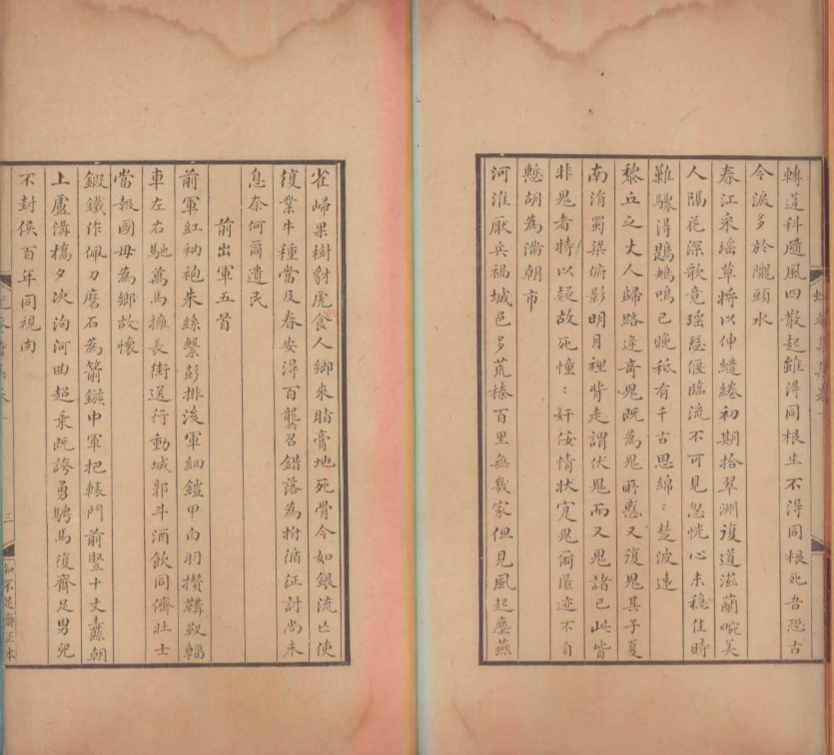 轉蓬科隨風四散起雖得同根生不得同根死吾恐古
今淚多於隴頭水
春江采瑶草將以伸繾綣初期拾翠洲復道滋蘭畹美
人隔花深歌竟瑶瑟偃臨流不可見怱恍心未穩佳時
難驟得鶗鴂鳴已晚秪有千古思綿：楚波遠
黎丘之丈人歸路逢奇鬼既為鬼所惑又復鬼其子夏
南淯蜀梁俯影明月裡背走謂伏鬼而又鬼諸己此皆
非鬼者特以疑故死憧：奸佞情狀寔鬼爾匿迹不自
慙胡為滿朝市
河淮厭兵禍城邑多荒榛百里無幾家但見風起塵燕
雀歸果樹豺虎食人鄉來脂膏地死骨今如銀流亡使
復業牛種當及春安得百龔召錯落為拊循征討尚未
息奈何爾遺民
前出軍五首
前軍紅衲袍朱絲繫彭排後軍細鎧甲白羽攢鞲靫輜
車左右馳萬馬擁長街送行動城郭斗酒飲同儕壯士
當報國毋為鄉故懷
鍛鐵作佩刀磨石為箭鏃中軍把轅門前豎十丈纛朝
上盧溝橋夕次泃河曲超乗既誇勇騁馬復齊足男兒
不封侯百年同視肉
三
知不足齋正本